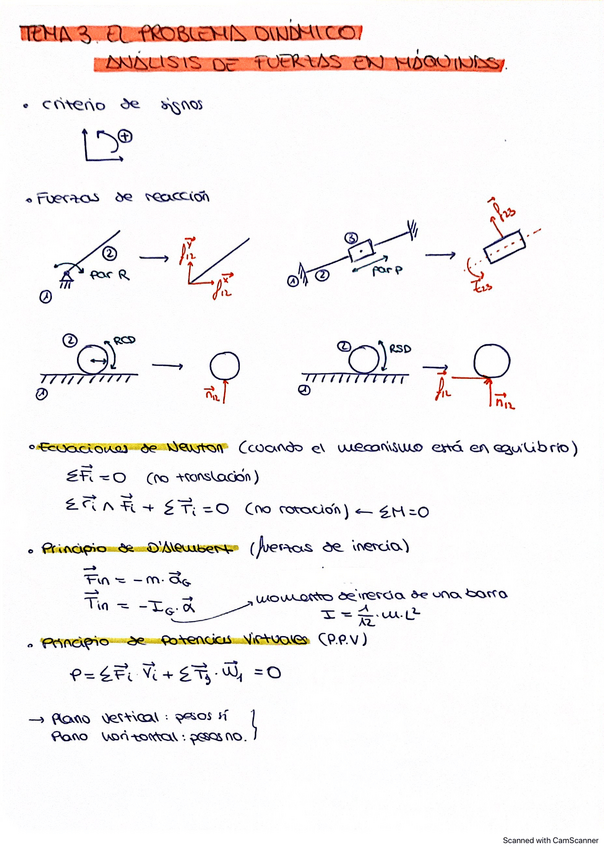 TEMA 3. EL PROBLEMA DINÁMICO.
ANÁLISIS DE FUERZAS EN MÁQUINAS.
• criterio de signos
+
• Fuerzas de reacción
2 par R 1 f12^y f12^x
3 1 2 par P f23 t23
2 RCD 1 n12
2 RSD 1 f12 n12
• Ecuaciones de Newton (cuando el mecanismo está en equilibrio)
ΣF⃗i = 0 (no translación)
Σ r⃗i ∧ F⃗i + Σ T⃗i = 0 (no rotación) ← ΣM = 0
• Principio de D'Alembert (fuerzas de inercia)
F⃗in = -m · a⃗G
T⃗in = -IG · α⃗ → momento de inercia de una barra
I = 1/12 · m · L²
• Principio de Potencias Virtuales (P.P.V)
P = Σ F⃗i · V⃗i + Σ T⃗j · ω⃗j = 0
→ Plano vertical : pesos sí
Plano horizontal : pesos no.
Scanned with CamScanner